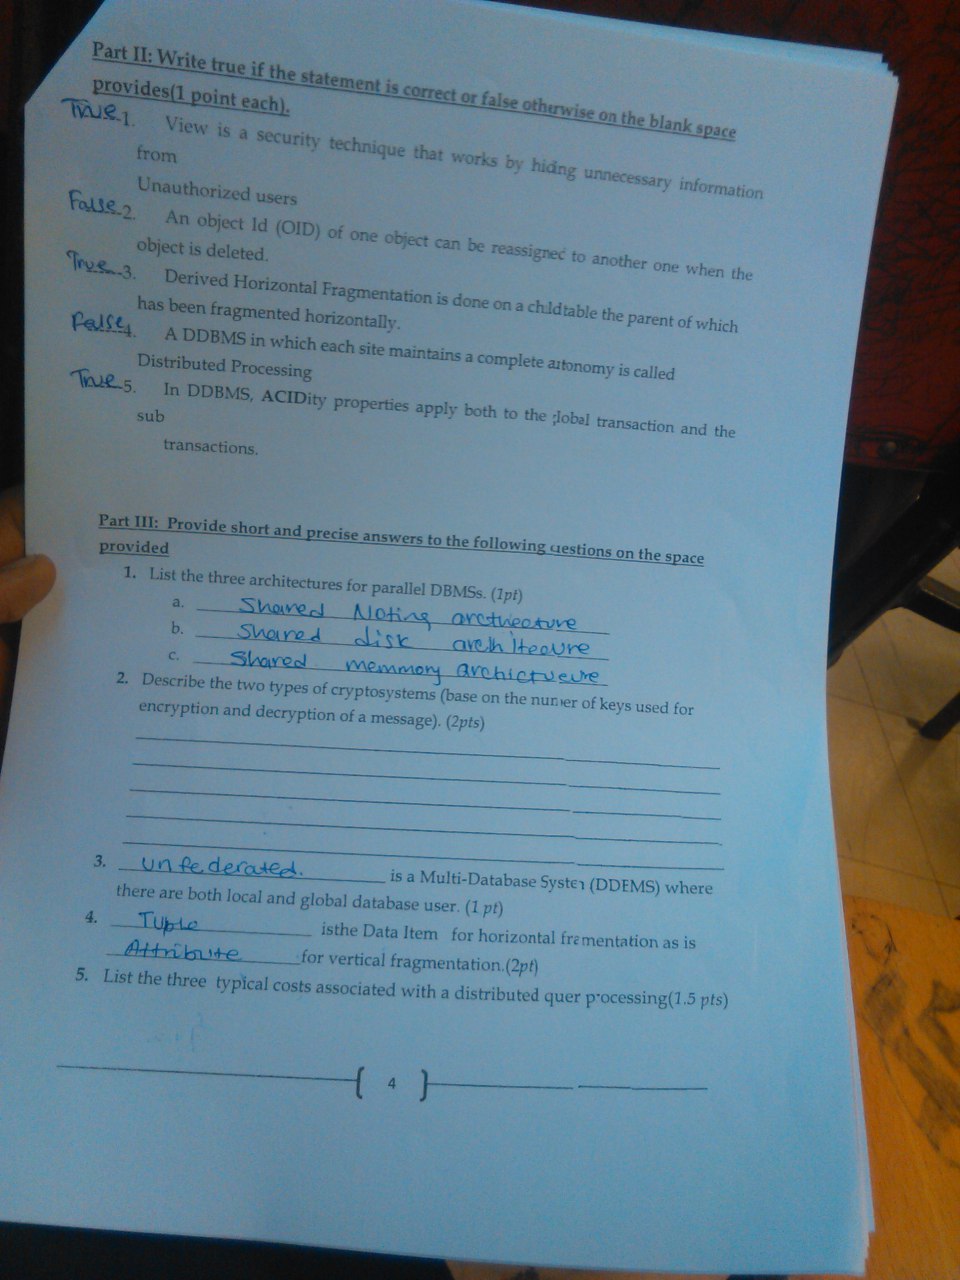 Part II: Write true if the statement is correct or false otherwise on the blank space
provides(1 point each).
True 1. View is a security technique that works by hiding unnecessary information
from
Unauthorized users
False 2. An object Id (OID) of one object can be reassigned to another one when the
object is deleted.
True 3. Derived Horizontal Fragmentation is done on a childtable the parent of which
has been fragmented horizontally.
False 4. A DDBMS in which each site maintains a complete autonomy is called
Distributed Processing
True 5. In DDBMS, ACIDity properties apply both to the global transaction and the
sub
transactions.
Part III: Provide short and precise answers to the following questions on the space
provided
1. List the three architectures for parallel DBMSs. (1pt)
a. Shared Noting arctheoture
b. Shared disk architeoure
c. Shared memmory archictueure
2. Describe the two types of cryptosystems (base on the number of keys used for
encryption and decryption of a message). (2pts)
3. unfederated. is a Multi-Database System (DDEMS) where
there are both local and global database user. (1 pt)
4. Tuple isthe Data Item for horizontal framentation as is
Attribute for vertical fragmentation.(2pt)
5. List the three typical costs associated with a distributed quer processing(1.5 pts)
4